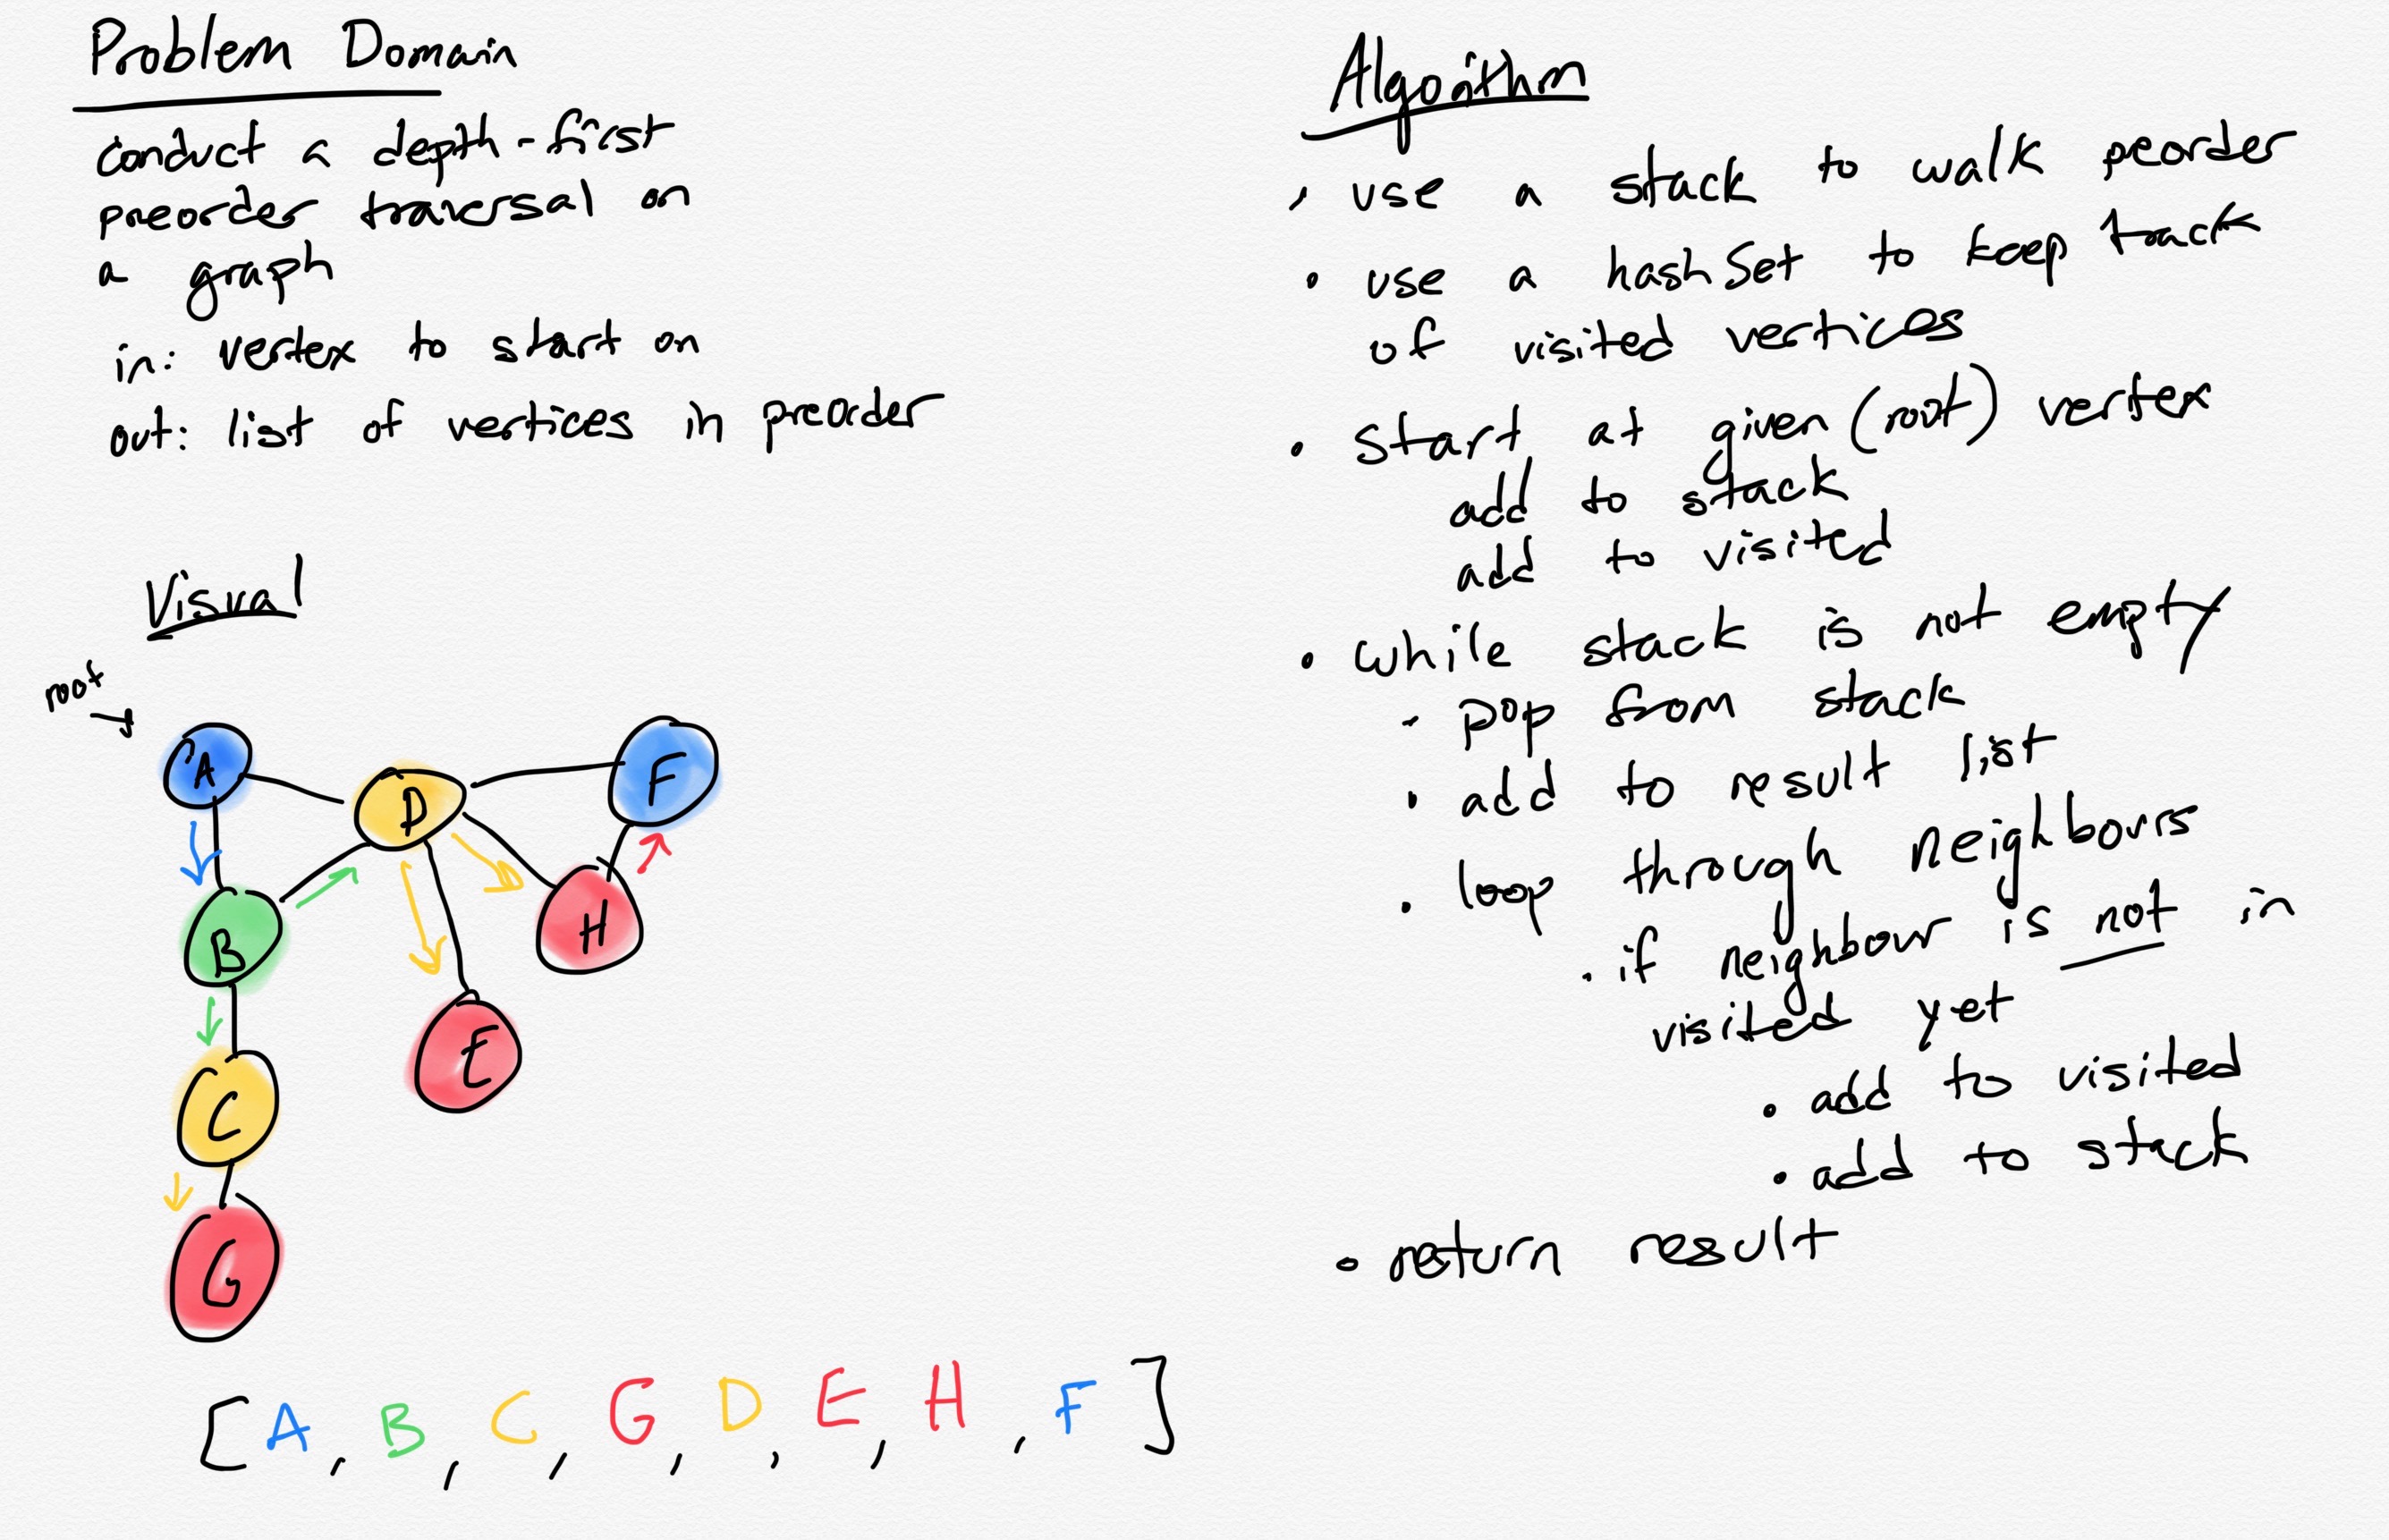 Problem Domain
conduct a depth-first
preorder traversal on
a graph
in: vertex to start on
out: list of vertices in preorder
Visual
root
A
D
F
B
H
E
C
G
[A, B, C, G, D, E, H, F]
Algorithm
• use a stack to walk peorder
• use a hashSet to keep track
of visited vertices
• start at given (root) vertex
add to stack
add to visited
• while stack is not empty
• pop from stack
• add to result list
• loop through neighbours
• if neighbour is not in
visited yet
• add to visited
• add to stack
• return result